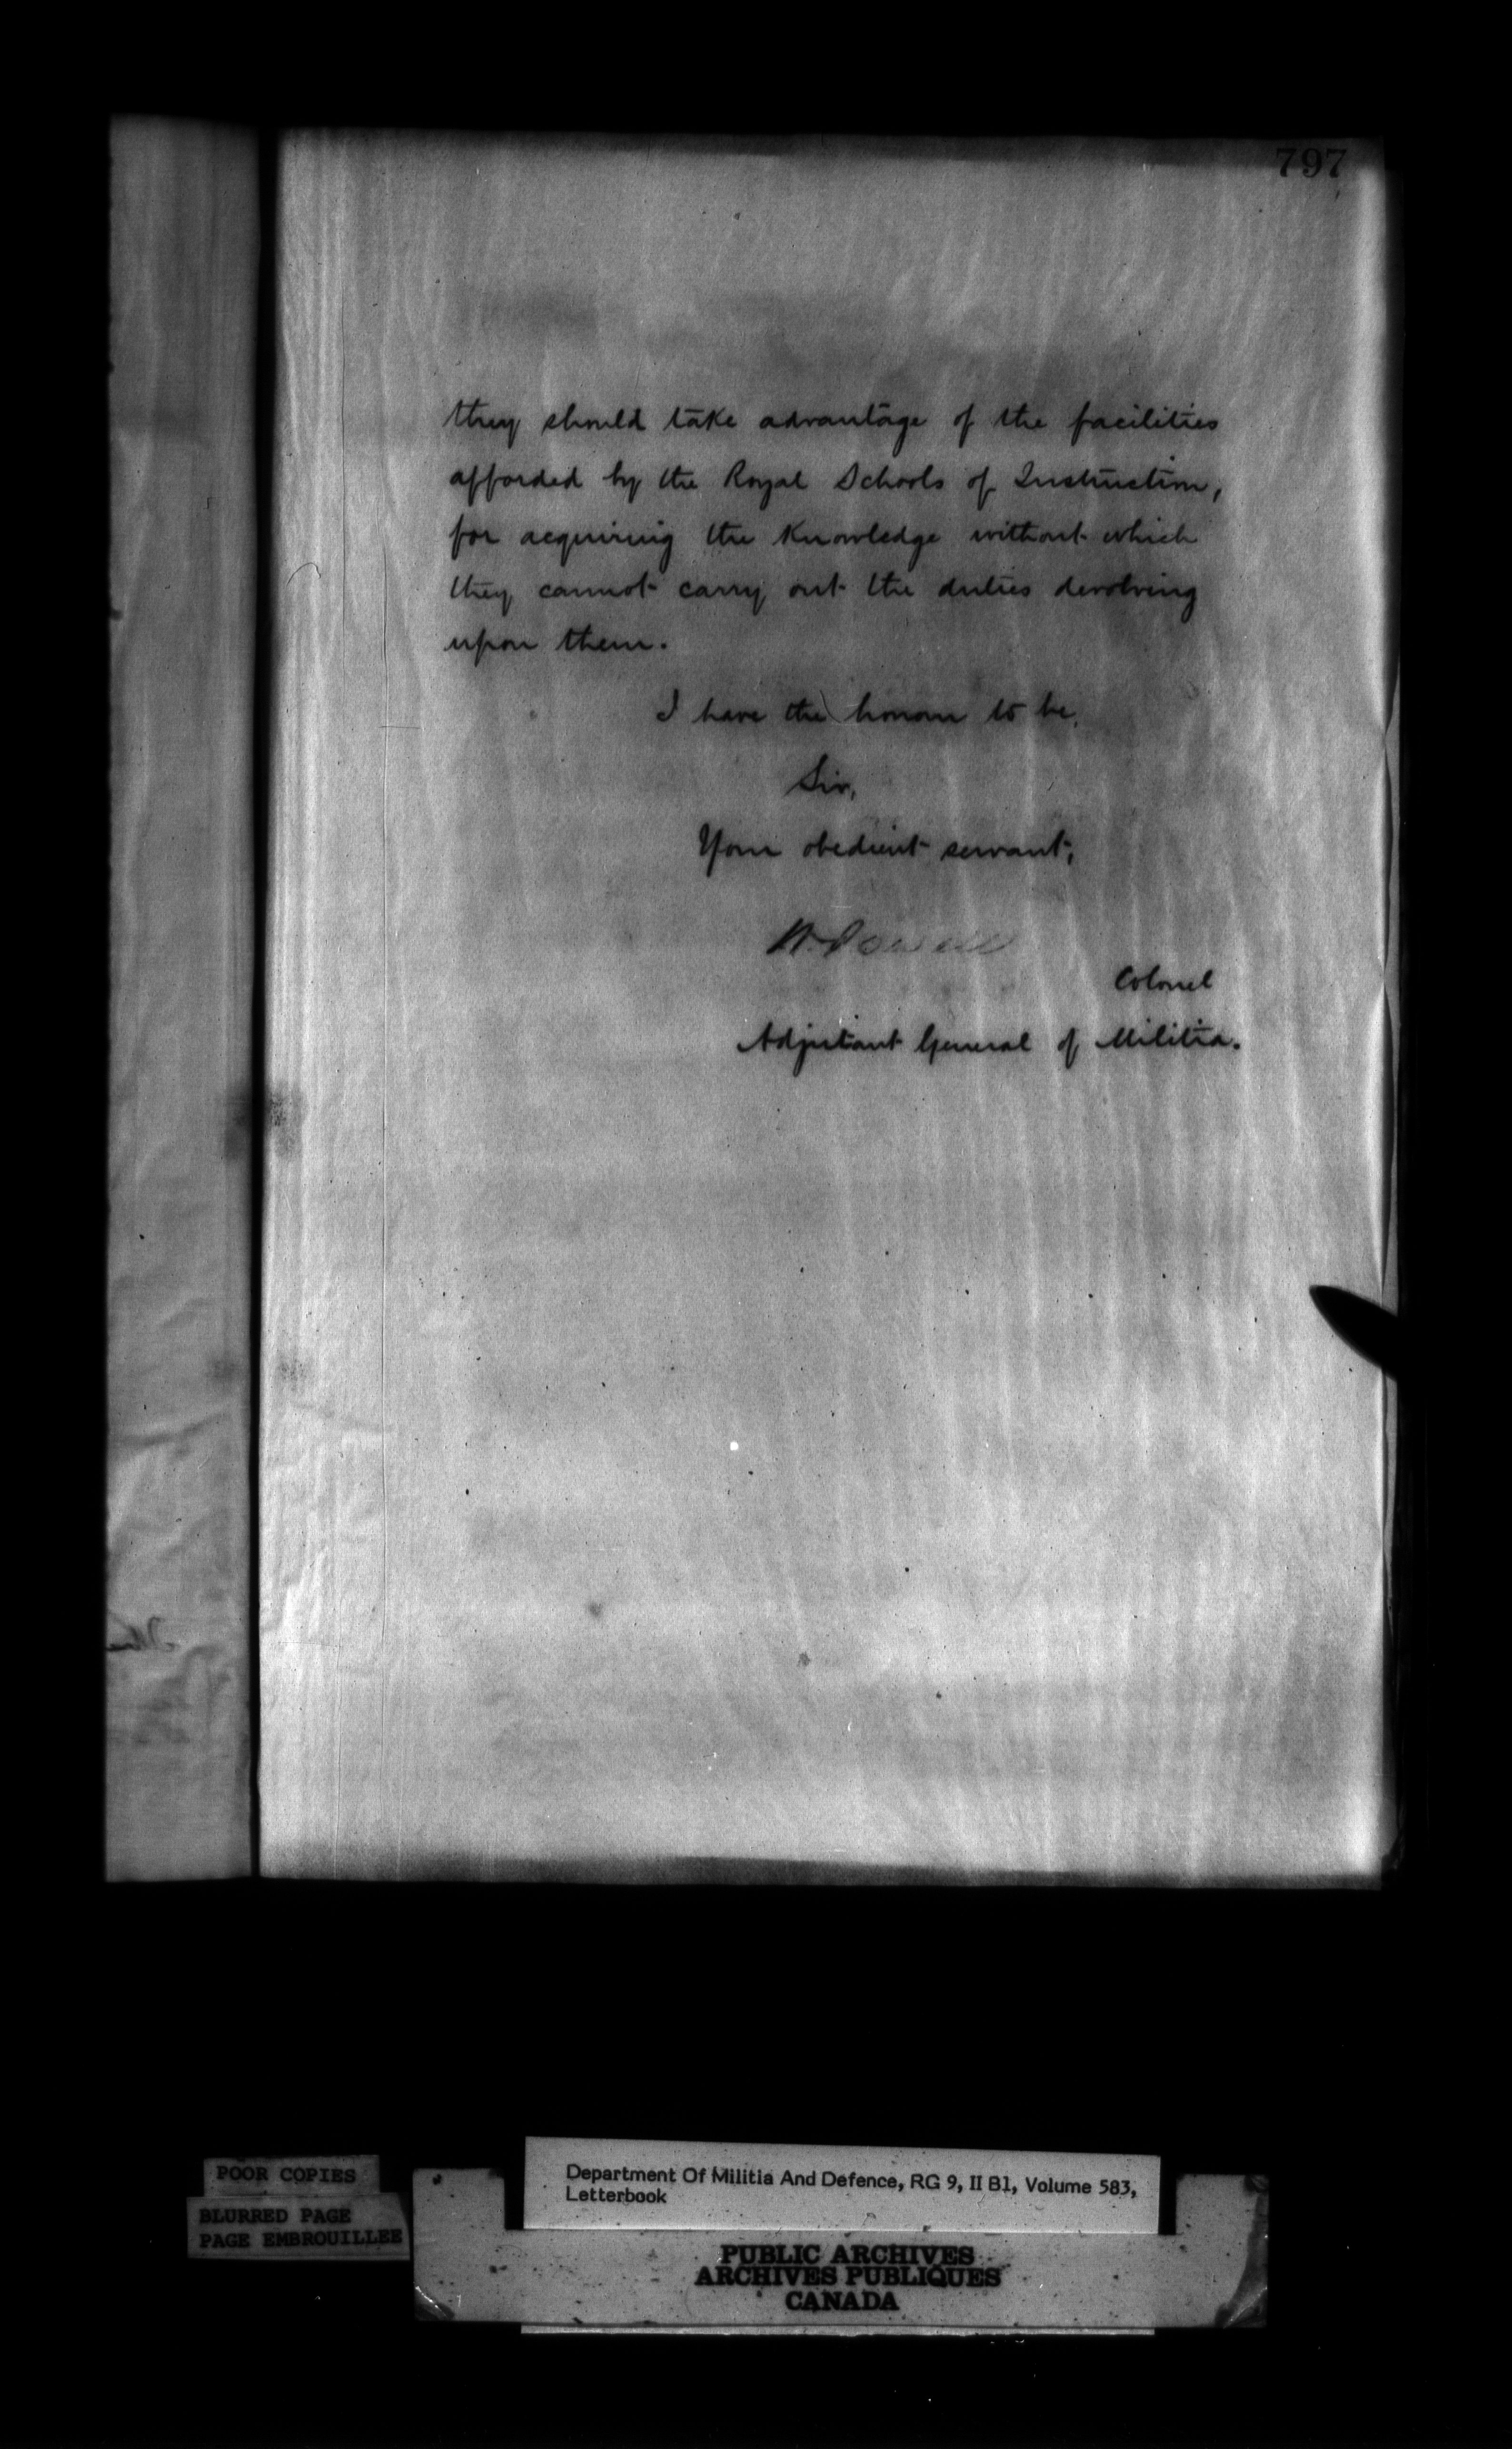 797
they should take advantage of the facilities
afforded by the Royal Schools of Instruction,
for acquiring the Knowledge without which
they cannot carry out the duties devolving
upon them.
I have the honour to be,
Sir,
Your obedient servant,
W. Powell
Colonel
Adjutant General of Militia.
POOR COPIES
BLURRED PAGE
PAGE EMBROUILLEE
Department Of Militia And Defence, RG 9, II B1, Volume 583,
Letterbook
PUBLIC ARCHIVES
ARCHIVES PUBLIQUES
CANADA